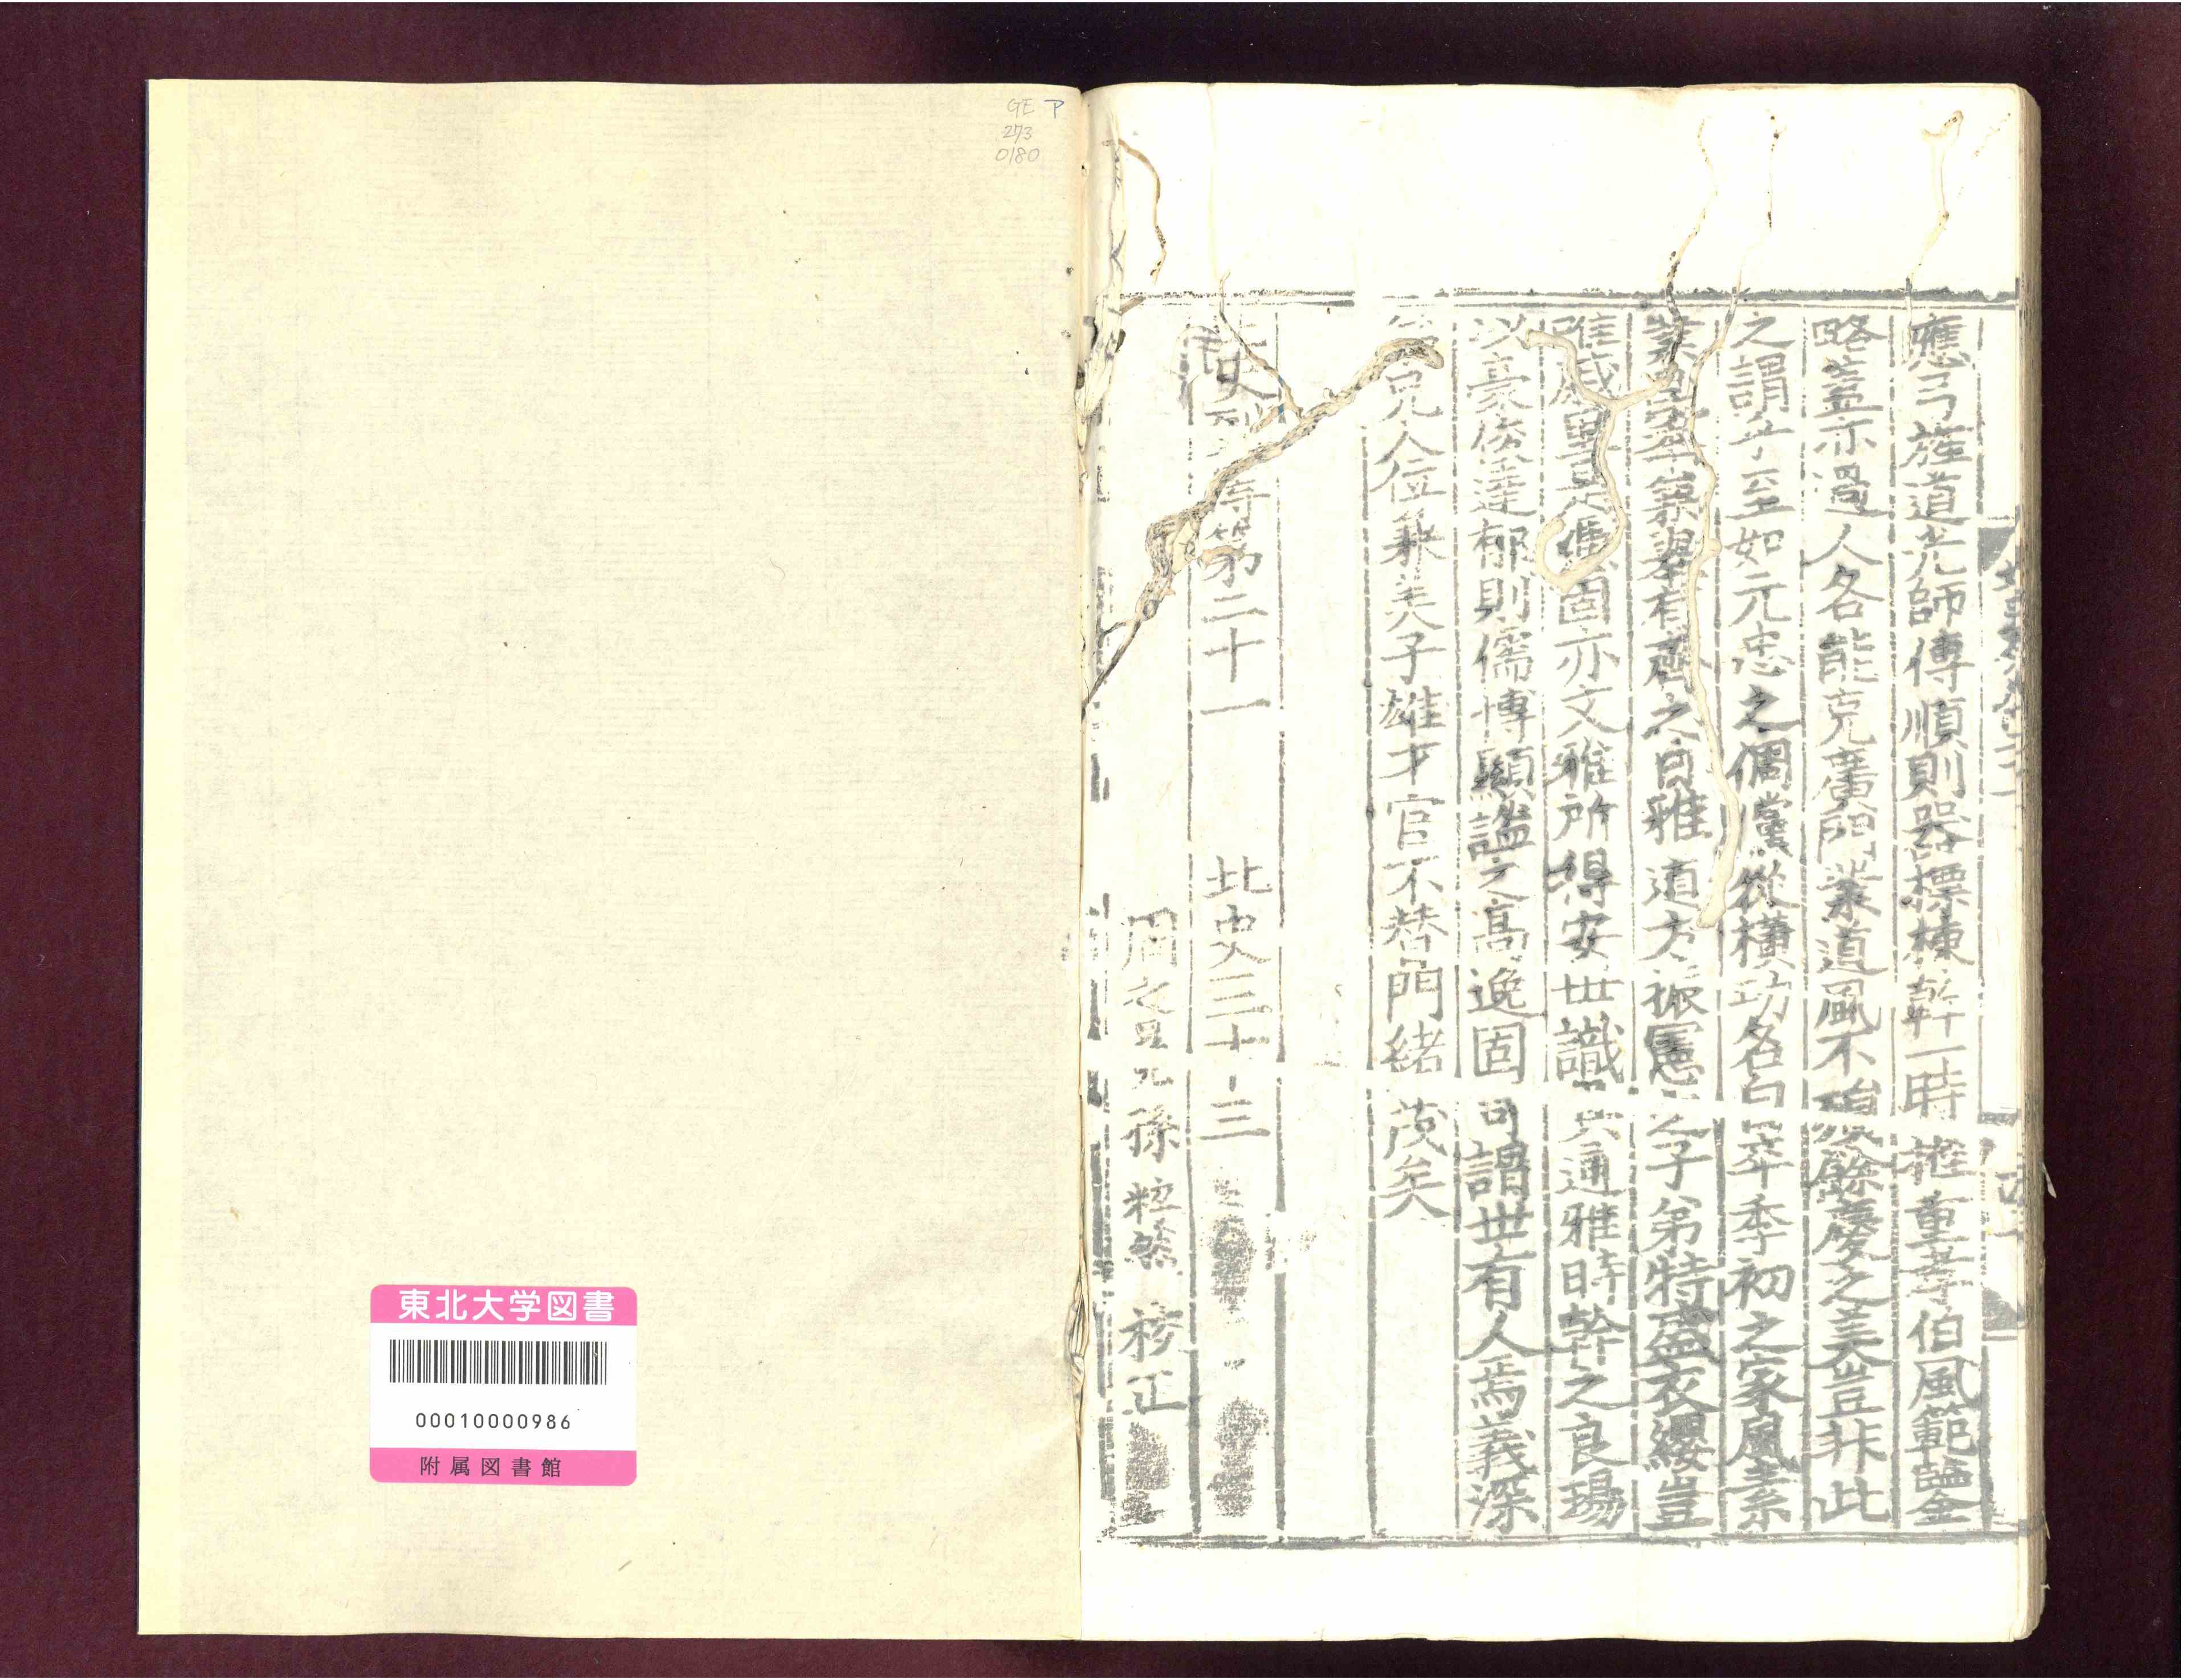 應弓旌道光師傅順則器標棟幹一時推重孝伯風範鑒金
略蓋亦過人各能克廣門業道風不殞餘慶之美豈非此
之謂乎至如元忠之倜儻從橫功名自卒季初之家風素
業昆季兼舉有齊之日雅道方振憲之子弟特盛衣纓豈
唯戚里是憑固亦文雅所得安世識具通雅時幹之良瑒
以豪俊達郁則儒博顯謐之高逸固可謂世有人焉義深
克人位兼美子雄才官不替門緒茂矣
史列傳第二十一 北史三十三
周之冕 孫粹然 校正
GE P
273
0180
東北大学図書
00010000986
附属図書館